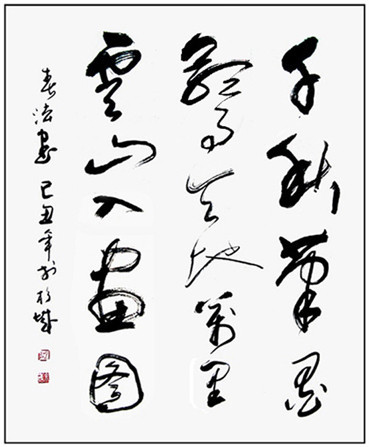 千秋筆墨
驚天地萬里
雲山入畫圖
己丑年